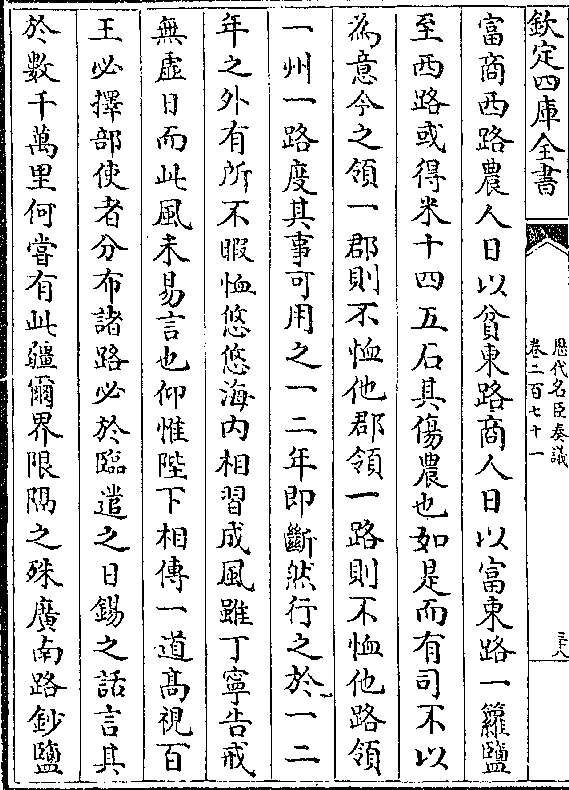 欽定四庫全書
歷代名臣奏議
卷二百七十一
三十八
富商西路農人日以貧東路商人日以富東路一籮鹽
至西路或得米十四五石其傷農也如是而有司不以
為意今之領一郡則不恤他郡領一路則不恤他路領
一州一路度其事可用之一二年即斷然行之於一二
年之外有所不暇恤悠悠海内相習成風雖丁寧告戒
無虛日而此風未易言也仰惟陛下相傳一道髙視百
王必擇部使者分布諸路必於臨遣之日錫之話言其
於數千萬里何嘗有此疆爾界限隅之殊廣南路鈔鹽